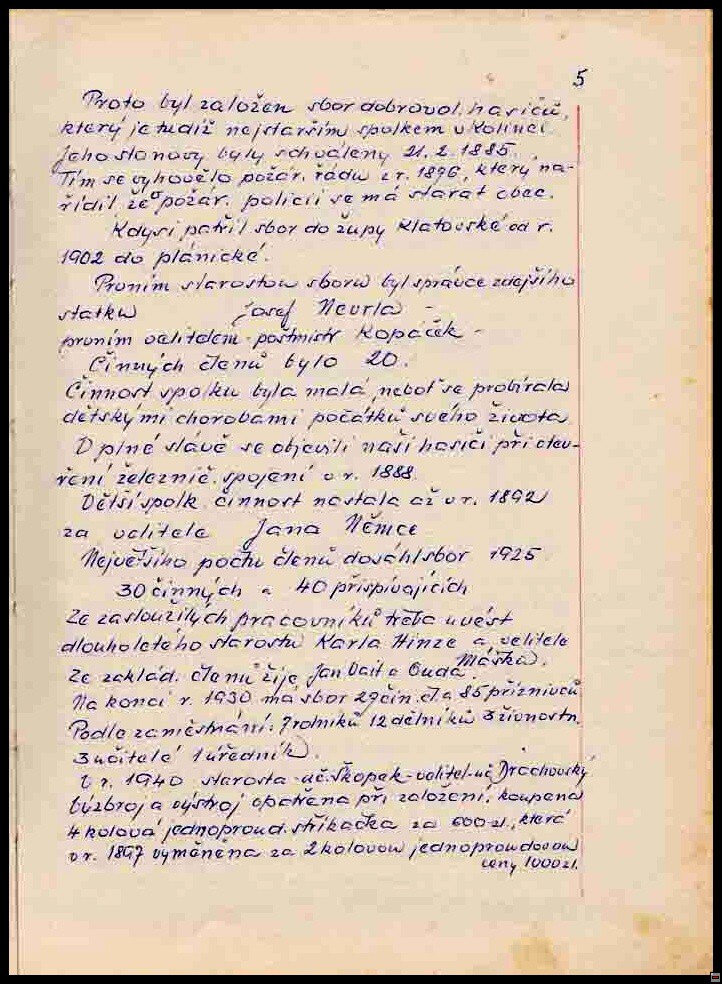 5
Proto byl založen sbor dobrovol. hasičů,
který je tudíž nejstarším spolkem v Kolinci.
Jeho stanovy byly schváleny 21. 2. 1885.
Tím se vyhovělo požár. řádu z r. 1896, který na-
řídil že požár. policii se má starat obec.
Kdysi patřil sbor do župy Klatovské od r.
1902 do plánické.
Prvním starostou sboru byl správce zdejšího
statku Josef Nevrla -
prvním velitelem - poštmistr Kopaček -
Činných členů bylo 20.
Činnost spolku byla malá neboť se probírala
dětskými chorobami počátků svého života
V plné slávě se objevili naši hasiči při otev-
ření železnič. spojení v r. 1888.
Větší spolk. činnost nastala až v r. 1892
za velitele Jana Němce
Největšího počtu členů dosáhl sbor 1925
30 činných a 40 přispívajících
Ze zasloužilých pracovníků třeba uvést
dlouholetého starostu Karla Hinze a velitele
Maška.
Ze zaklád. členů žije Jan Vait a Ouda
Na konci r. 1930 má sbor 29 čin. čl. a 85 příznivců
Podle zaměstnání: 7 rolníků 12 dělníků 3 živnostn.
3 učitelé 1 úředník.
V r. 1940 starosta uč. Škopek - velitel - uč. Drachovský
Výzbroj a výstroj opatřena při založení, koupena
4 kolová jednoproud. stříkačka za 600 zl., která
v r. 1897 vyměněna za 2 kolovou jednoproudovou
ceny 1000 zl.